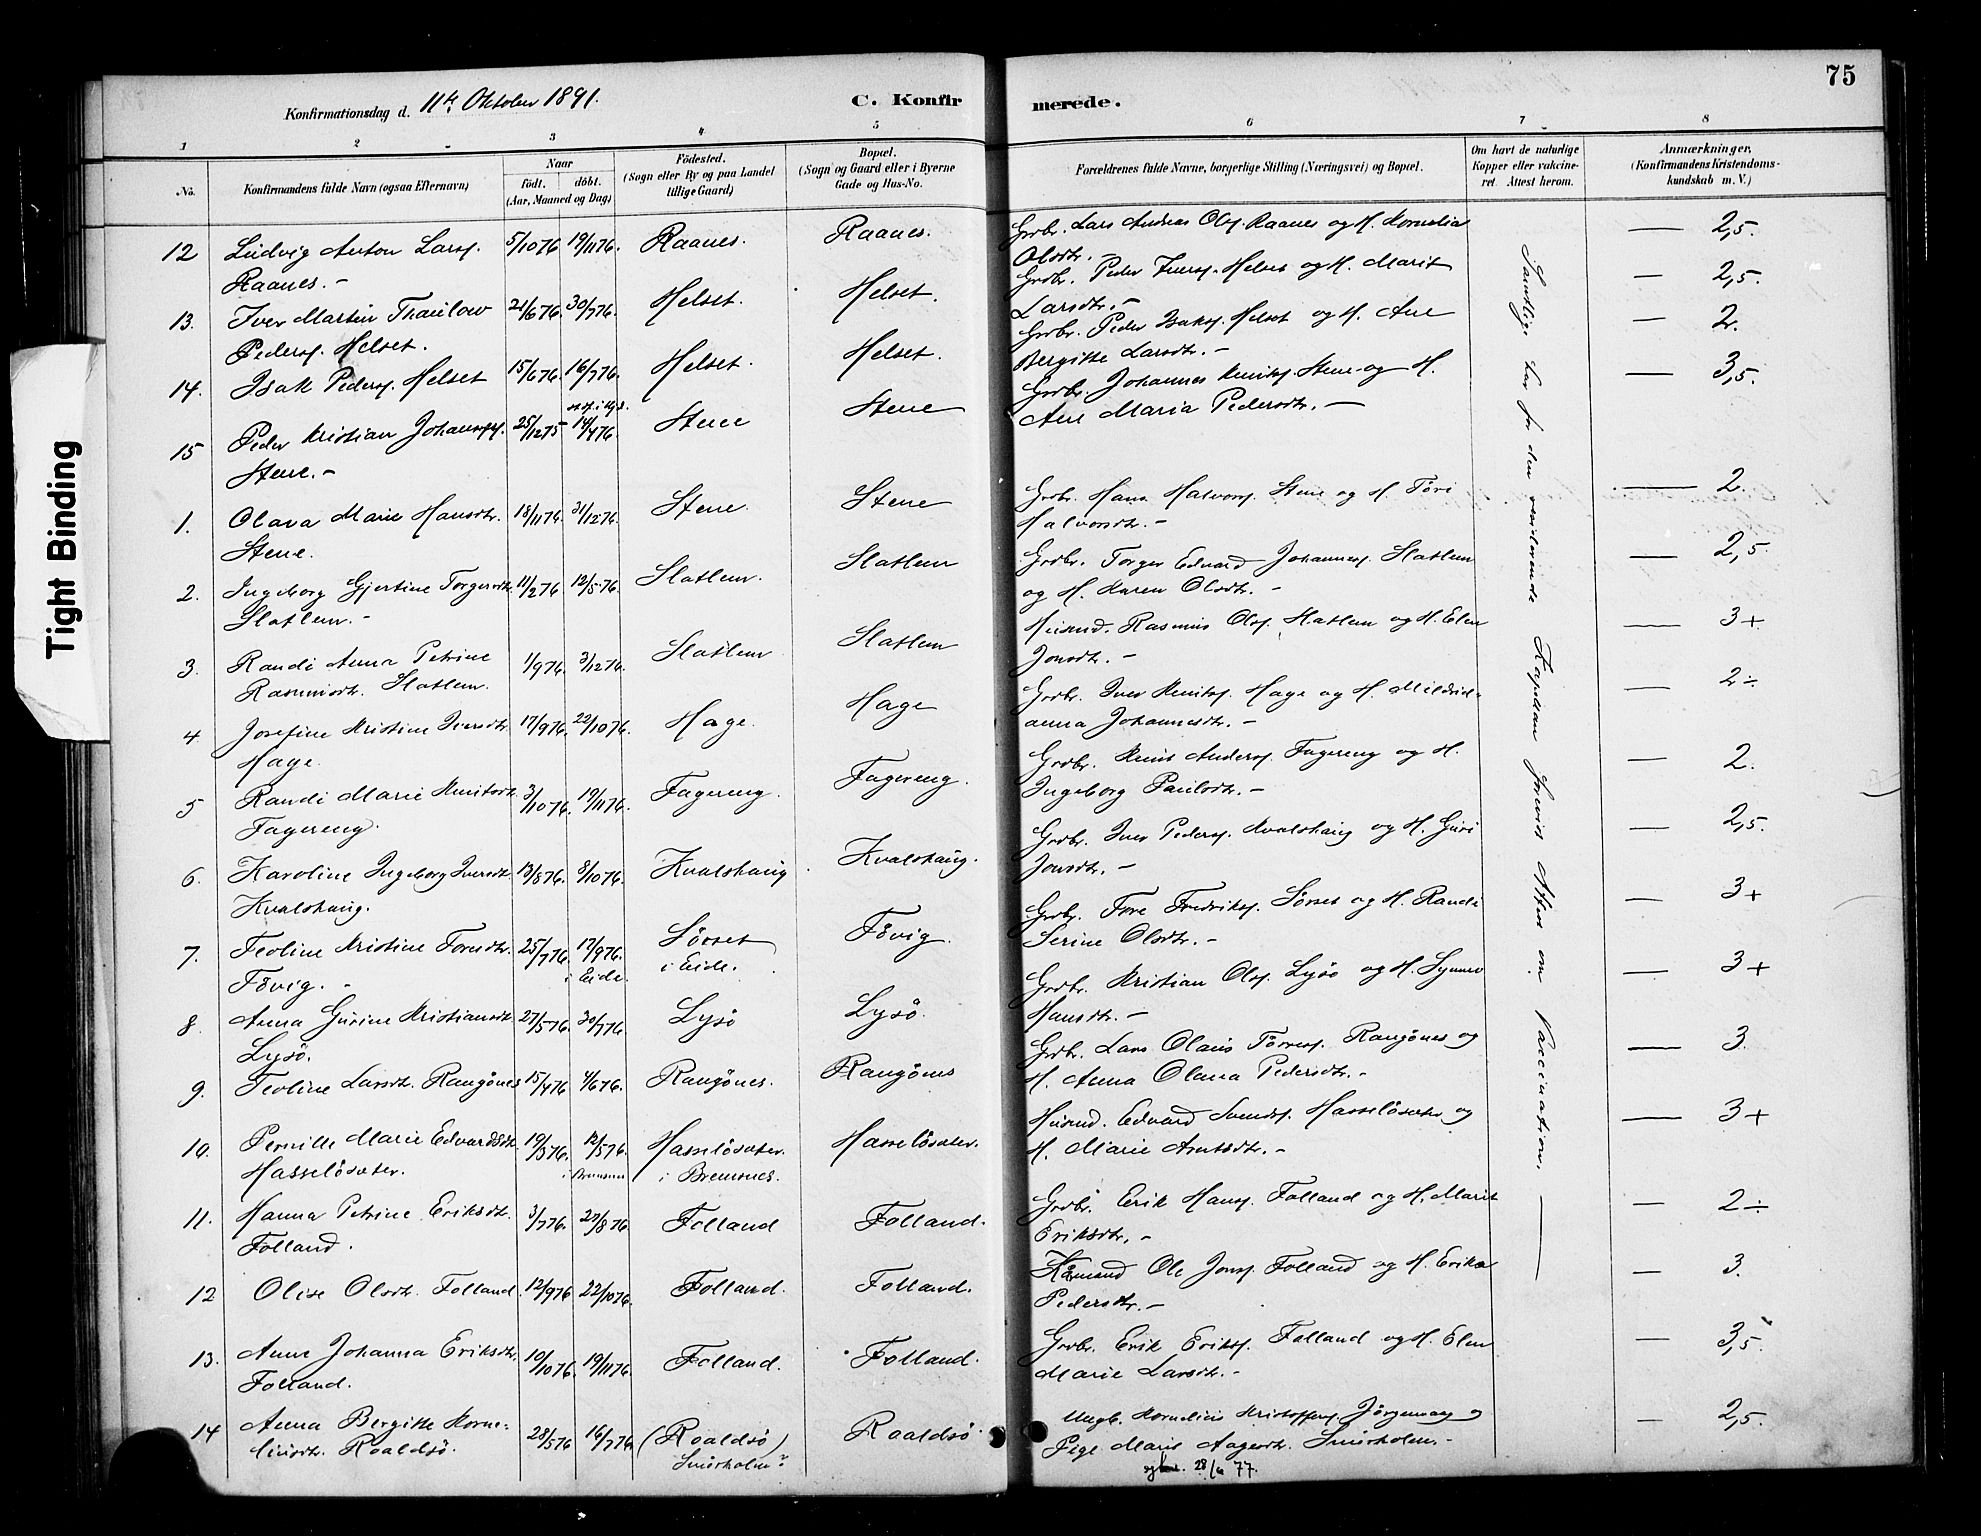 75
Konfirmationsdag d. 11te Oktober 1891.
C. Konfirmerede.
1 2 3 4 5 6 7 8
No.
Konfirmandens fulde Navn (ogsaa Efternavn)
Naar
födt. döbt.
(Aar, Maaned og Dag)
Födested.
(Sogn eller By og paa Landet
tillige Gaard)
Bopæl.
(Sogn og Gaard eller i Byerne
Gade og Hus-No.
Forældrenes fulde Navne, borgerlige Stilling (Næringsvei) og Bopæl.
Om havt de naturlige
Kopper eller vakcine-
ret. Attest herom.
Anmærkninger,
(Konfirmandens Kristendoms-
kundskab m. V.)
12 Ludvig Anton Larss. 5/10 76 19/11 76. Raanes. Raanes. Grdbr. Lars Andreas Ols. Raanes og H. Kornelia — 2,5.
Raanes. – Olsdtr. –
13. Iver Martin Thaulow 21/6 76. 30/7 76. Helset. Helset. Grdbr. Peder Iverss. Helset og H. Marit — 2,5.
Peders. Helset. Larsdtr. –
14. Isak Peders. Helset 15/6 76. 16/7 76. Helset. Helset. Grdbr. Peder Isaks. Helset og H. Ane — 2.
Bergitte Larsdtr. –
15 Peder Kristian Johanness. 25/12 75 14/4 76. Stene Stene Grdbr. Johannes Knuts. Stene og H. — 3,5.
Stene. – Ane Maria Pedersdtr. –
1. Olava Marie Hansdtr. 18/11 76. 31/12 76. Stene. Stene Grdbr. Hans Halvors. Stene og H. Töri — 2.
Stene. Halvorsdtr. –
2. Ingeborg Gjertine Torgersdtr. 11/2 76. 12/5 76. Slatlem. Slatlem Grdbr. Torger Edvard Johanness. Slatlem — 2,5.
Slatlem. – og H. Karen Olsdtr. –
3. Randi Anna Petrine 1/9 76. 3/12 76. Slatlem Slatlem Husmd. Rasmus Ols. Slatlem og H. Elen — 3+
Rasmusdtr. Slatlem. Jonsdtr. –
4 Josefine Kristine Iversdtr. 17/9 76. 22/10 76. Hage. Hage Grdbr. Iver Knuts. Hage og H. Mildrid- — 2÷
Hage. anna Johannesdtr. –
5 Randi Marie Knutsdtr. 3/10 76. 19/11 76. Fagereng. Fagereng. Grdbr. Knut Anders. Fagereng og H. — 2.
Fagereng. Ingeborg Paulsdtr. –
6. Karoline Ingeborg Iversdtr. 13/8 76. 8/10 76. Kvalshaug Kvalshaug. Grdbr. Iver Peders. Kvalshaug og H. Guri — 2,5.
Kvalshaug. Jonsdtr. –
7. Teoline Kristine Toresdtr. 25/7 76. 17/9 76. Sörset Tövig. Grdbr. Tore Fredriks. Sörset og H. Randi — 3+
Tövig. – i Eide. i Eide. Serine Olsdtr. –
8. Anna Gurine Kristiansdtr. 27/5 76. 30/7 76. Lysö Lysö. Grdbr. Kristian Ols. Lysö og H. Synnev — 3+
Lysö. Hansdtr. –
9. Teoline Larsdtr. Rangönes 15/4 76 4/6 76. Rangönes. Rangönes Grdbr. Lars Olaus Törress. Rangönes og — 3.
H. Anna Olana Pedersdtr. –
10. Pernille Marie Edvardsdtr. 19/3 76. 12/5 76. Hasselösæter. Hasselösæter. Husmd. Edvard Svends. Hasselösæter og — 3+
Hasselösæter. i Bremsnes i Bremsnes. H. Marie Arntsdtr. –
11. Hanna Petrine Eriksdtr. 3/7 76. 27/8 76. Folland Folland. Grdbr. Erik Hanss. Folland og H. Marit — 2÷
Folland. Eriksdtr. –
12 Olise Olsdtr. Folland. 12/9 76 22/10 76. Folland. Folland. Ole Jons. Folland og H. Erika — 3.
Pedersdtr. –
13. Anne Johanna Eriksdtr. 10/10 76. 19/11 76. Folland. Folland. Grdbr. Erik Eriks. Folland og H. Elen — 3,5.
Folland. Marie Larsdtr. –
14 Anna Bergitte Korne- 28/5 76 16/7 76 (Roaldsö) Roaldsö. Ungk. Kornelius Kristoffers. Jörgenvaag og — 2,5.
liusdtr. Roaldsö. Smörholm? Pige Marit Aagesdtr. Smörholm. –
28/6 77.
Samtlige har for den vedkommende Kapellan forevist Attest om Vaccination. —
Tight Binding